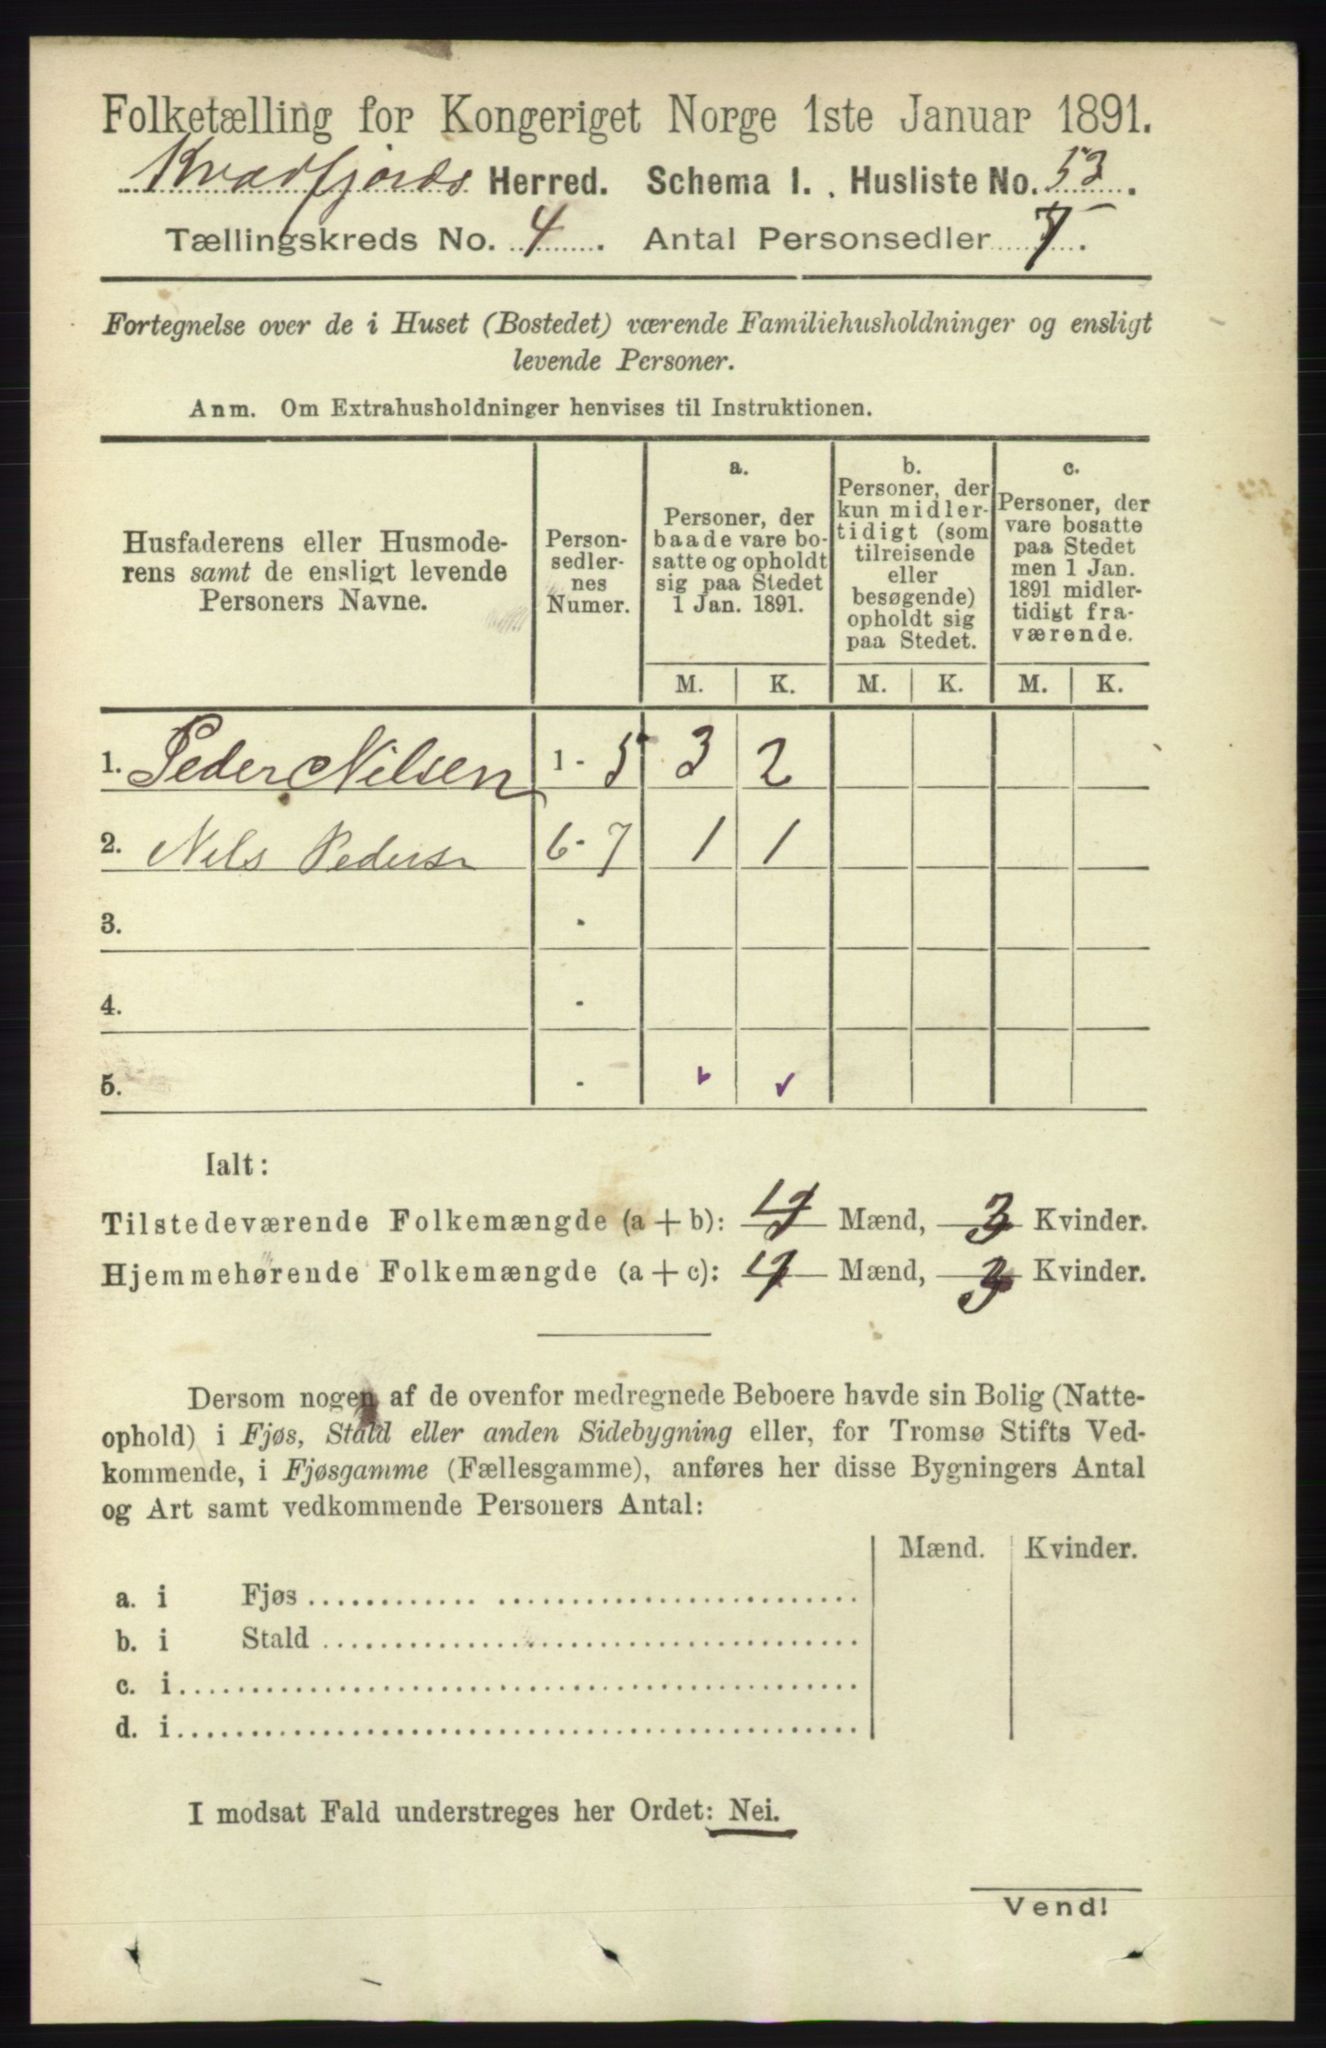 Folketælling for Kongeriget Norge 1ste Januar 1891.
Kvædfjords Herred. Schema I. Husliste No. 53.
Tællingskreds No. 4. Antal Personsedler 7.
Fortegnelse over de i Huset (Bostedet) værende Familiehusholdninger og ensligt
levende Personer.
Anm. Om Extrahusholdninger henvises til Instruktionen.
Husfaderens eller Husmode-
rens samt de ensligt levende
Personers Navne.
Person-
sedler-
nes
Numer.
a.
Personer, der
baade vare bo-
satte og opholdt
sig paa Stedet
1 Jan. 1891.
b.
Personer, der
kun midler-
tidigt (som
tilreisende
eller
besøgende)
opholdt sig
paa Stedet.
c.
Personer, der
vare bosatte
paa Stedet
men 1 Jan.
1891 midler-
tidigt fra-
værende.
M. K. M. K. M. K.
1. Peder Nilsen 1 - 5 3 2
2. Nils Peders 6 - 7 1 1
3. -
4. -
5. -
Ialt:
Tilstedeværende Folkemængde (a + b): 4 Mænd, 3 Kvinder.
Hjemmehørende Folkemængde (a + c): 4 Mænd, 3 Kvinder.
Dersom nogen af de ovenfor medregnede Beboere havde sin Bolig (Natte-
ophold) i Fjøs, Stald eller anden Sidebygning eller, for Tromsø Stifts Ved-
kommende, i Fjøsgamme (Fællesgamme), anføres her disse Bygningers Antal
og Art samt vedkommende Personers Antal:
Mænd. Kvinder.
a. i Fjøs
b. i Stald
c. i
d. i
I modsat Fald understreges her Ordet: Nei.
Vend!